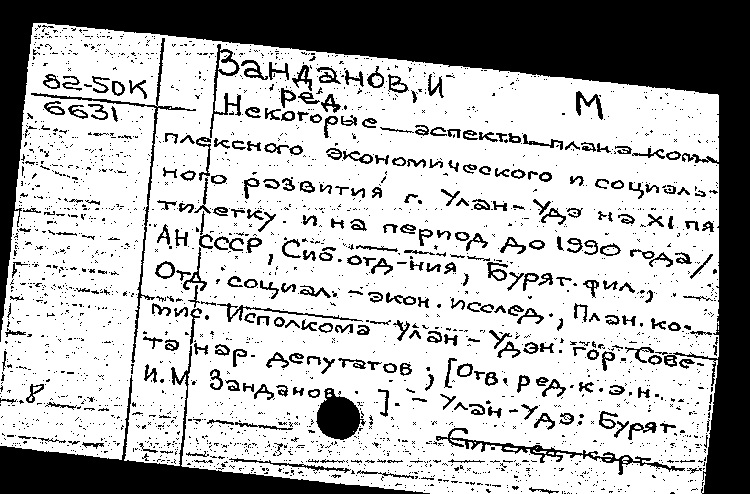 Занданов, И М
82-5DK
ред.
6631
Некоторые аспекты плана ком-
плексного экономического и социаль-
ного развития г. Улан-Удэ на XI пя-
тилетку и на период до 1990 года/.
АН СССР, Сиб. отд-ния, Бурят. фил.,
Отд. социал.-экон. исслед., План. ко-
мис. Исполкома Улан-Удэн. гор. Сове-
та нар. депутатов ; [Отв. ред. к. э. н. ...
И.М. Занданов. ]. - Улан-Удэ: Бурят.
8
См. след. карт.